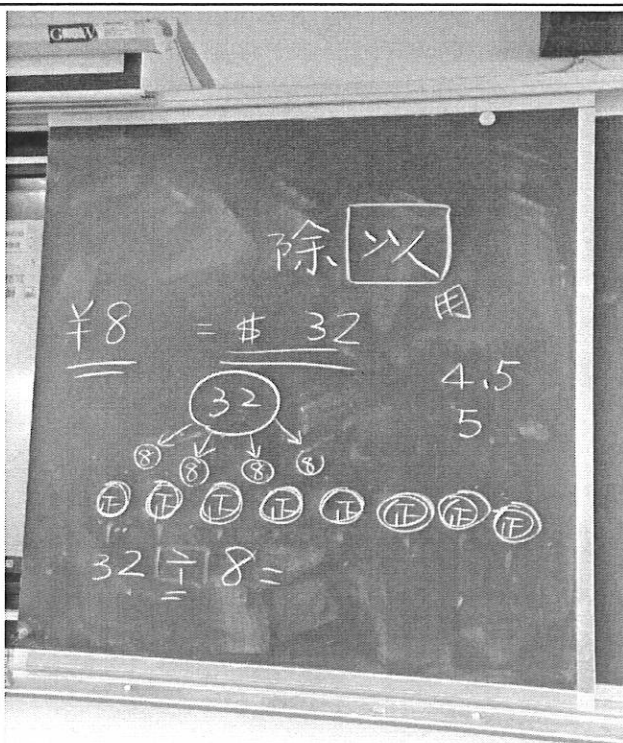 除以
用
¥8 = $ 32
4.5
5
32
8 8 8 8
正 正 正 正 正 正 正 正
32 ÷ 8 =